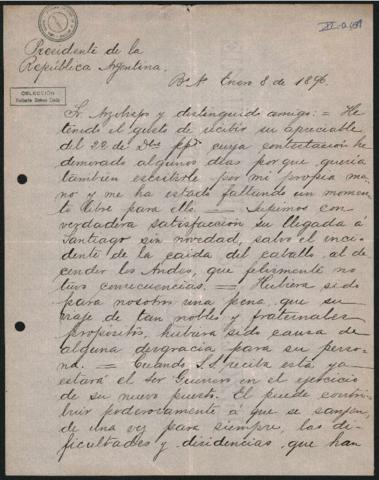 Presidente de la
República Argentina.
COLECCIÓN
Bs As Enero 8 de 1896.
Sr. y distinguido amigo: = He
tenido el gusto de recibir su apreciable
del 22 de Dbre ppdo cuya contestación he
demorado algunos días por que queria
tambien escribirle por mi propia ma-
no y me ha estado faltando un momen-
to libre para ello. — Supimos con
verdadera satisfacción su llegada á
Santiago sin novedad, salvo el inci-
dente de la caida del caballo, al de-
cender los Andes, que felizmente no
tuvo consecuencias. = Hubiera sido
para nosotros una pena, que su
viaje de tan nobles y fraternales
propósitos, hubiera sido causa de
alguna desgracia para su perso-
na. = Cuando S.S. reciba esta ya
estará el Sor Guerrero en el ejercicio
de su nuevo puesto. El puede contri-
buir poderosamente á que se zanjen,
de una vez para siempre, las di-
ficultades y disidencias, que han